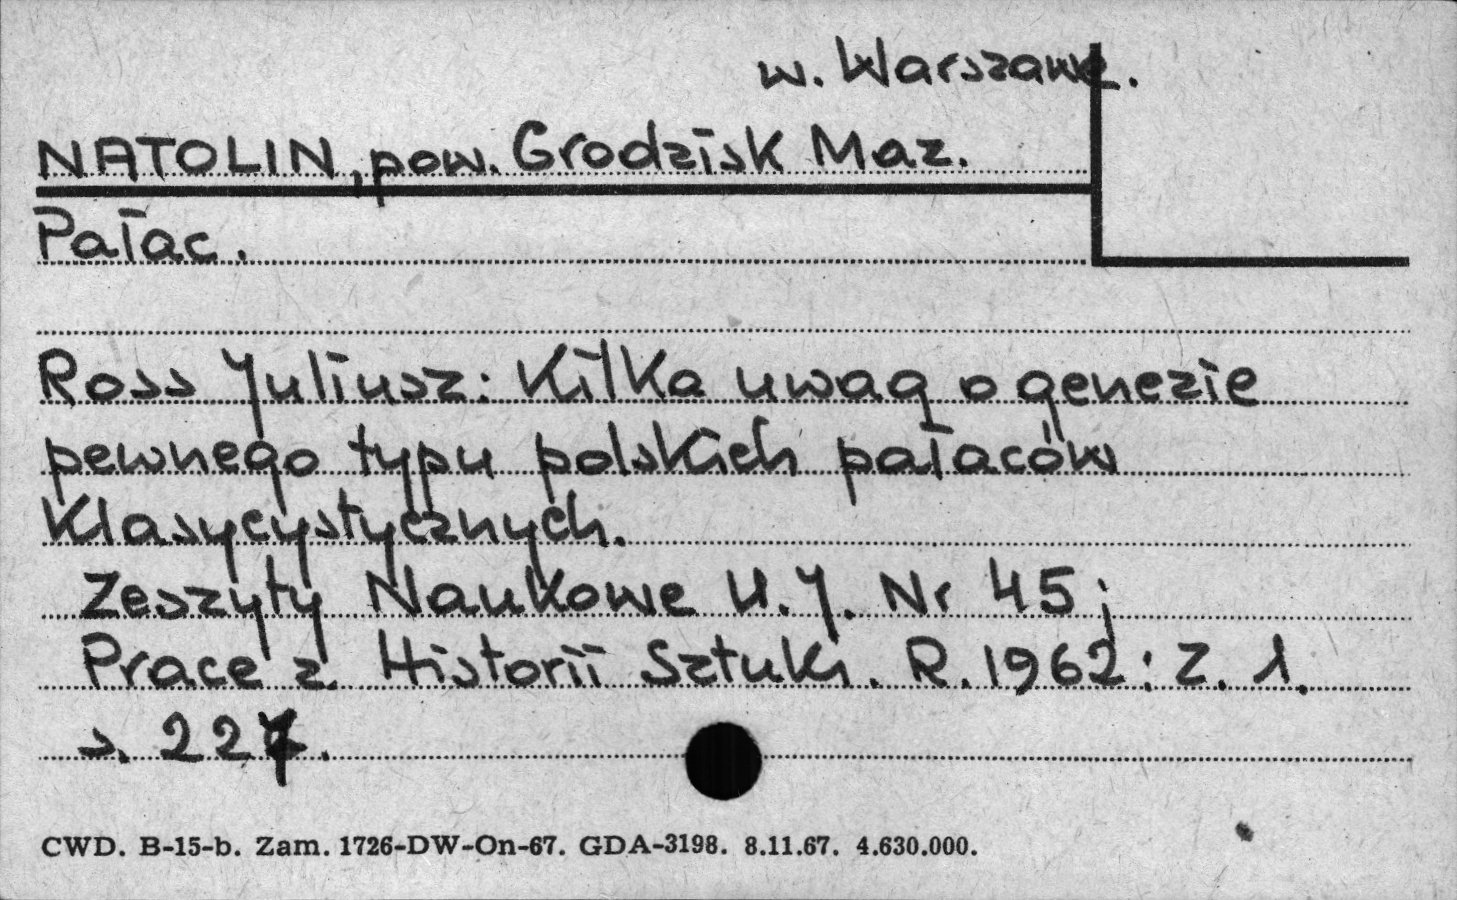 w. Warszawa.
NATOLIN, pow. Grodzisk Maz.
Pałac.
Ross Juliusz: Kilka uwag o genezie
pewnego typu polskich pałaców
klasycystycznych.
Zeszyty Naukowe U.J. Nr 45;
Prace z Historii Sztuki. R. 1962: Z. 1.
s. 227.
CWD. B-15-b. Zam. 1726-DW-On-67. GDA-3198. 8.11.67. 4.630.000.